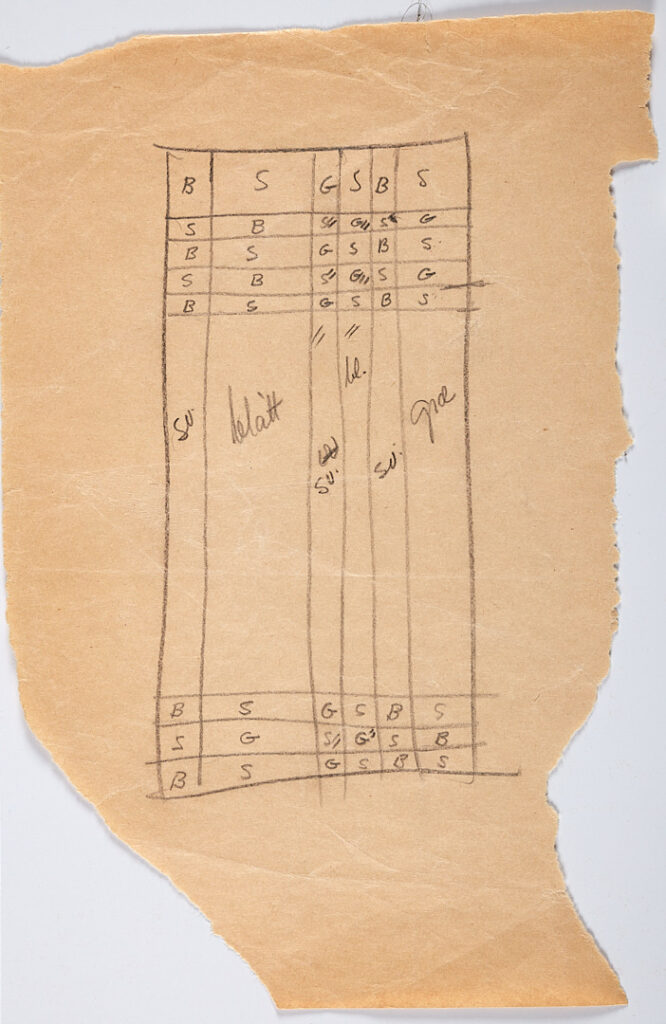 B S G S B S
S B S" G" S G
B S G S B S
S B S" G" S G
B S G S B S
" "
bl.
Sv. blått Sv. Sv. grå
B S G S B S
S G S" G" S B
B S G S B S